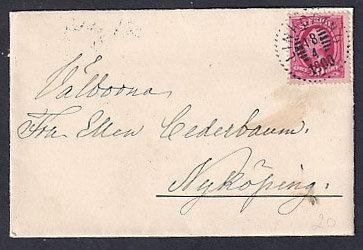 Välborna
Fru Ellen Cederbaum.
Nyköping.
8
4
1890
20